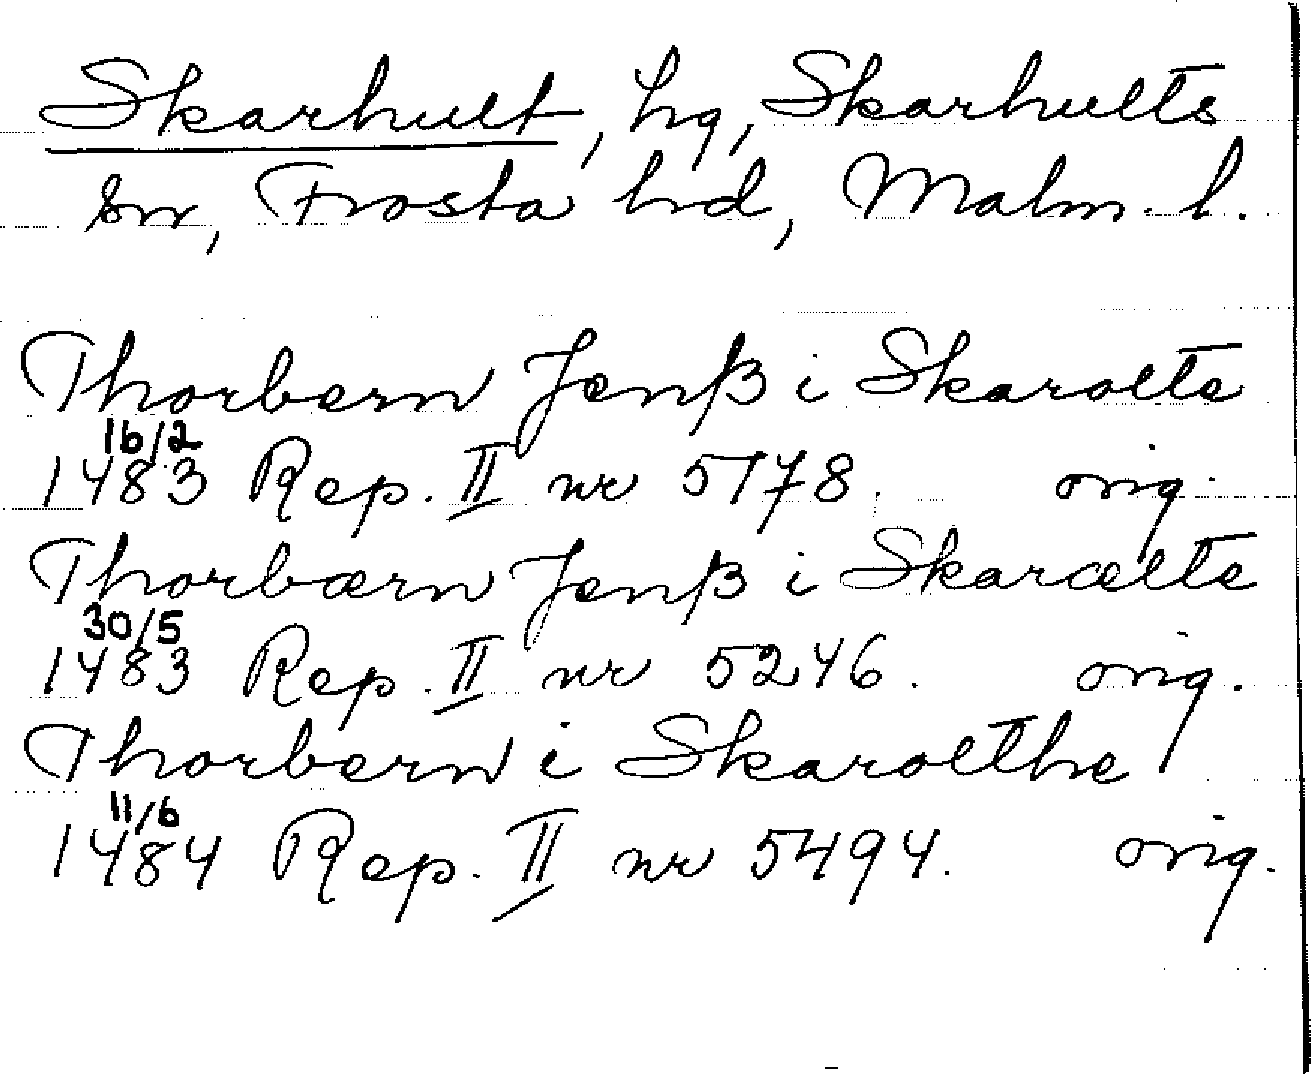 Skarhult, hg, Skarhults
sn, Frosta hd, Malm. l.
Thorbern Jenß i Skarolte
16/2
1483 Rep. II nr 5178. orig.
Thorbærn Jenß i Skarælte
30/5
1483 Rep. II nr 5246. orig.
Thorbern i Skarolthe
11/6
1484 Rep. II nr 5494. orig.